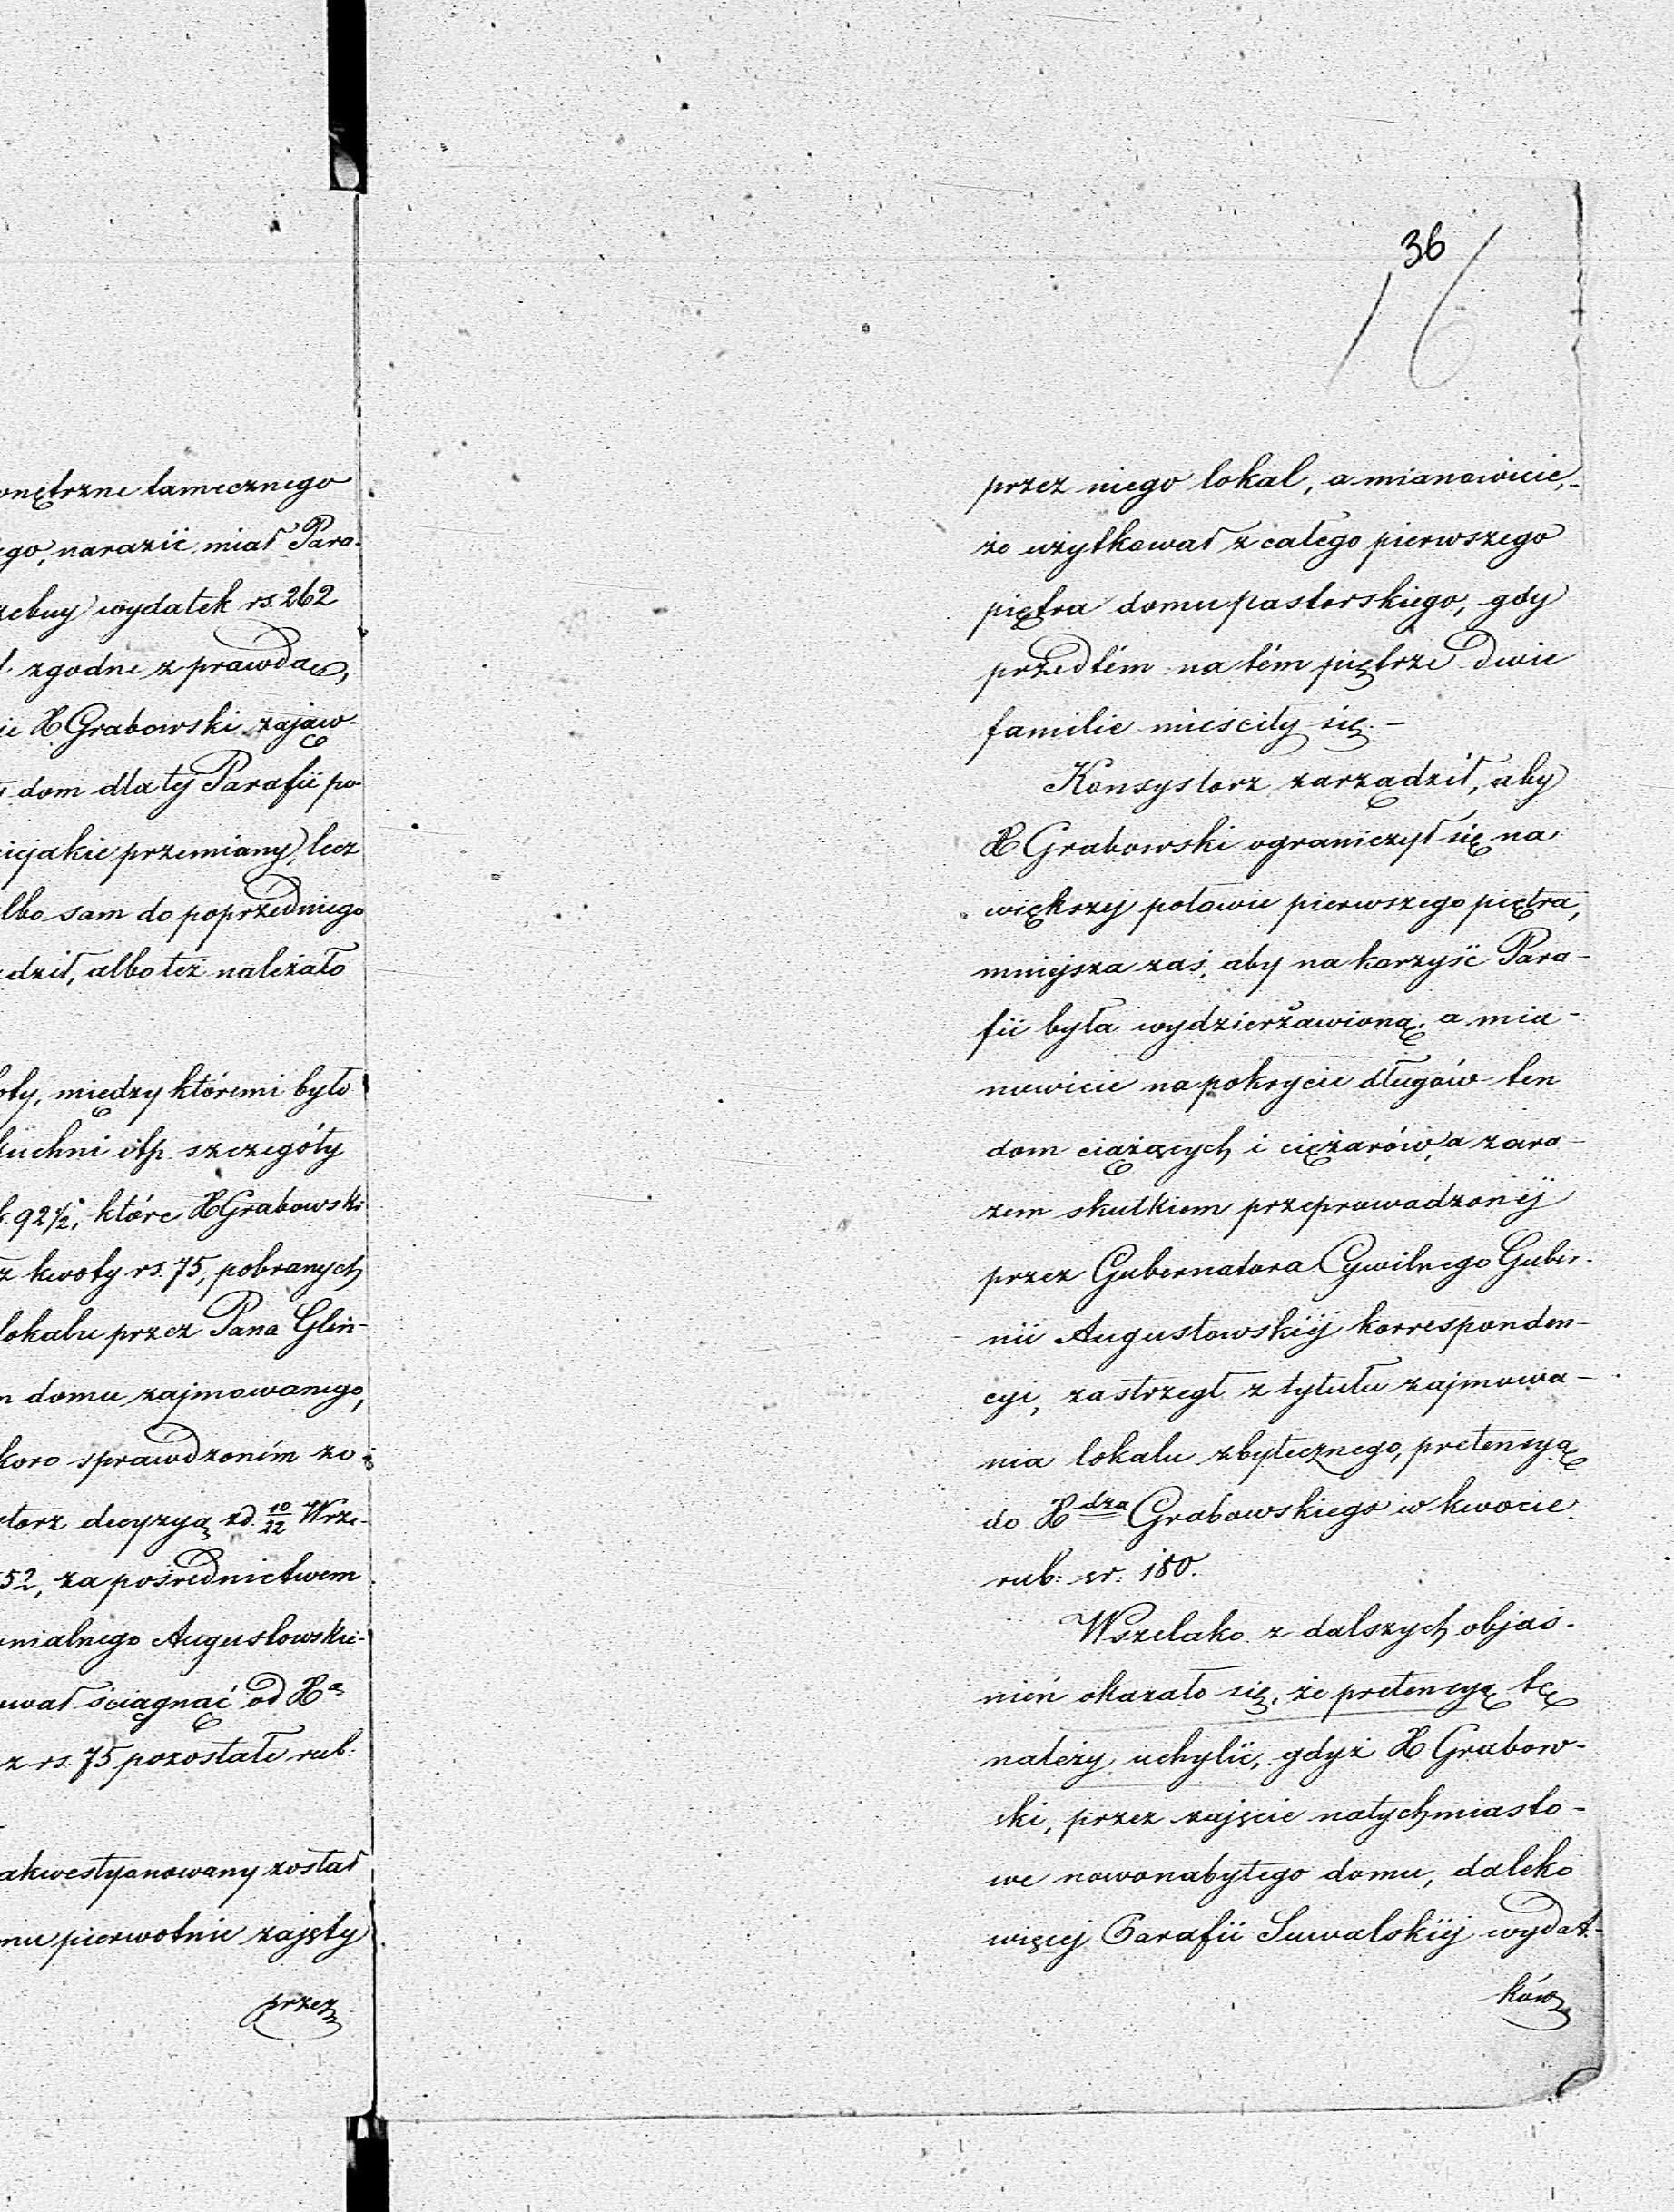 onętrzne tamecznego
ego, narazić miał Para-
zebny wydatek rs. 262
zgodne z prawdą,
ie X Grabowski zająw-
dom dla tej Parafii po-
jakie przemiany, lecz
lbo sam do poprzedniego
dził, albo też należało
oty, między któremi było
kuchni itp. szczegóły
k. 92 1/2, które X Grabowski
z kwoty rs. 75, pobranych
lokalu przez Pana Glin-
m domu zajmowanego,
koro sprawdzoném zo-
storz decyzyą zd. 10/22 Wrze-
52, za pośrednictwem
nialnego Augustowskie-
ował ściągnąć od Xa
z rs. 75 pozostałe rub:
akwestyonowany został
mu pierwotnie zajęty
przez
36
16
przez niego lokal, a mianowicie,
że użytkował z całego pierwszego
piętra domu pastorskiego, gdy
przedtém na tém piętrze dwie
familie mieściły się. –
Konsystorz zarządził, aby
X Grabowski ograniczył się na
większej połowie pierwszego piętra,
mniejsza zaś, aby na korzyść Para-
fii była wydzierżawioną, a mia-
nowicie na pokrycie długów ten
dom ciążących i ciężarów, a zara-
zem skutkiem przeprowadzonéj
przez Gubernatora Cywilnego Guber-
nii Augustowskiéj korresponden-
cyi, zastrzegł z tytułu zajmowa-
nia lokalu zbytecznego, pretensyą
do Xdza Grabowskiego w kwocie
rub: sr: 180.
Wszelako z dalszych objaś-
nień okazało się, że pretensyę tę
należy uchylić, gdyż X Grabow-
ski, przez zajęcie natychmiasto-
we nowonabytego domu, daleko
więcej Parafii Suwalskiéj wydat-
ków